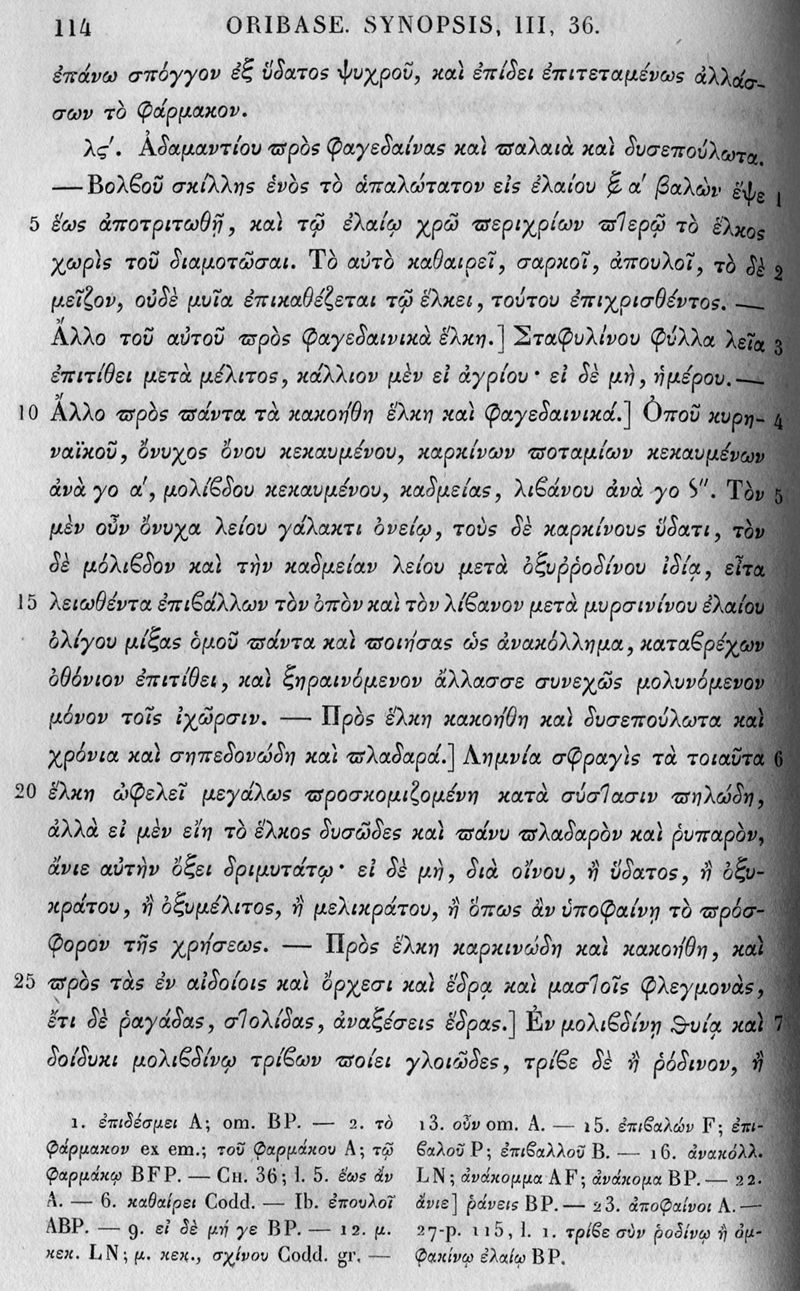 114 ORIBASE. SYNOPSIS, III, 36.
ἐπάνω σπόγγον ἐξ ὕδατος ψυχροῦ, καὶ ἐπίδει ἐπιτεταμένως ἀλλάσ-
σων τὸ φάρμακον.
λϛʹ. Ἀδαμαντίου πρὸς φαγεδαίνας καὶ παλαιὰ καὶ δυσεπούλωτα.
— Βολβοῦ σκίλλης ἑνὸς τὸ ἁπαλώτατον εἰς ἐλαίου αʹ βαλὼν ἕψε 1
5 ἕως ἀποτριτωθῇ, καὶ τῷ ἐλαίῳ χρῶ περιχρίων πτερῷ τὸ ἕλκος
χωρὶς τοῦ διαμοτῶσαι. Τὸ αὐτὸ καθαιρεῖ, σαρκοῖ, ἀπουλοῖ, τὸ δὲ 2
μεῖζον, οὐδὲ μυῖα ἐπικαθέζεται τῷ ἕλκει, τούτου ἐπιχρισθέντος. —
Ἄλλο τοῦ αὐτοῦ πρὸς φαγεδαινικὰ ἕλκη.] Σταφυλίνου φύλλα λεῖα 3
ἐπιτίθει μετὰ μέλιτος, κάλλιον μὲν εἰ ἀγρίου· εἰ δὲ μὴ, ἡμέρου. —
10 Ἄλλο πρὸς πάντα τὰ κακοήθη ἕλκη καὶ φαγεδαινικά.] Ὀποῦ κυρη- 4
ναϊκοῦ, ὄνυχος ὄνου κεκαυμένου, καρκίνων ποταμίων κεκαυμένων
ἀνὰ γο αʹ, μολίβδου κεκαυμένου, καδμείας, λιβάνου ἀνὰ γο Ϛʺ. Τὸν 5
μὲν οὖν ὄνυχα λείου γάλακτι ὀνείῳ, τοὺς δὲ καρκίνους ὕδατι, τὸν
δὲ μόλιβδον καὶ τὴν καδμείαν λείου μετὰ ὀξυῤῥοδίνου ἰδίᾳ, εἶτα
15 λειωθέντα ἐπιβάλλων τὸν ὀπὸν καὶ τὸν λίβανον μετὰ μυρσινίνου ἐλαίου
ὀλίγου μίξας ὁμοῦ πάντα καὶ ποιήσας ὡς ἀνακόλλημα, καταβρέχων
ὀθόνιον ἐπιτίθει, καὶ ξηραινόμενον ἄλλασσε συνεχῶς μολυνόμενον
μόνον τοῖς ἰχῶρσιν. — Πρὸς ἕλκη κακοήθη καὶ δυσεπούλωτα καὶ
χρόνια καὶ σηπεδονώδη καὶ πλαδαρά.] Λημνία σφραγὶς τὰ τοιαῦτα 6
20 ἕλκη ὠφελεῖ μεγάλως προσκομιζομένη κατὰ σύστασιν πηλώδη,
ἀλλὰ εἰ μὲν εἴη τὸ ἕλκος δυσῶδες καὶ πάνυ πλαδαρὸν καὶ ῥυπαρὸν,
ἄνιε αὐτὴν ὄξει δριμυτάτῳ· εἰ δὲ μὴ, διὰ οἴνου, ἢ ὕδατος, ἢ ὀξυ-
κράτου, ἢ ὀξυμέλιτος, ἢ μελικράτου, ἢ ὅπως ἂν ὑποφαίνῃ τὸ πρόσ-
φορον τῆς χρήσεως. — Πρὸς ἕλκη καρκινώδη καὶ κακοήθη, καὶ
25 πρὸς τὰς ἐν αἰδοίοις καὶ ὄρχεσι καὶ ἕδρᾳ καὶ μαστοῖς φλεγμονὰς,
ἔτι δὲ ῥαγάδας, στολίδας, ἀναξέσεις ἕδρας.] Ἐν μολιβδίνῃ θυίᾳ καὶ 7
δοίδυκι μολιβδίνῳ τρίβων ποίει γλοιῶδες, τρίβε δὲ ἢ ῥόδινον, ἢ
1. ἐπιδέσμει A; om. BP. — 2. τὸ
φάρμακον ex em.; τοῦ φαρμάκου A; τῷ
φαρμάκῳ BFP. — CH. 36; l. 5. ἕως ἂν
A. — 6. καθαίρει Codd. — Ib. ἐπουλοῖ
ABP. — 9. εἰ δὲ μή γε BP. — 12. μ.
κεκ. LN; μ. κεκ., σχίνου Codd. gr. —
13. οὖν om. A. — 15. ἐπιβαλών F; ἐπι-
βαλοῦ P; ἐπιβαλλοῦ B. — 16. ἀνακόλλ.
LN; ἀνάκομμα AF; ἀνάκομα BP. — 22.
ἄνιε] ῥάνεις BP. — 23. ἀποφαίνοι A. —
27-p. 115, l. 1. τρίβε σὺν ῥοδίνῳ ἢ ὀμ-
φακίνῳ ἐλαίῳ BP.